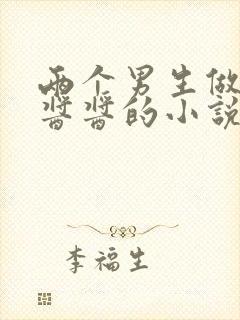 两个男生做
酱酱的小说
李福生